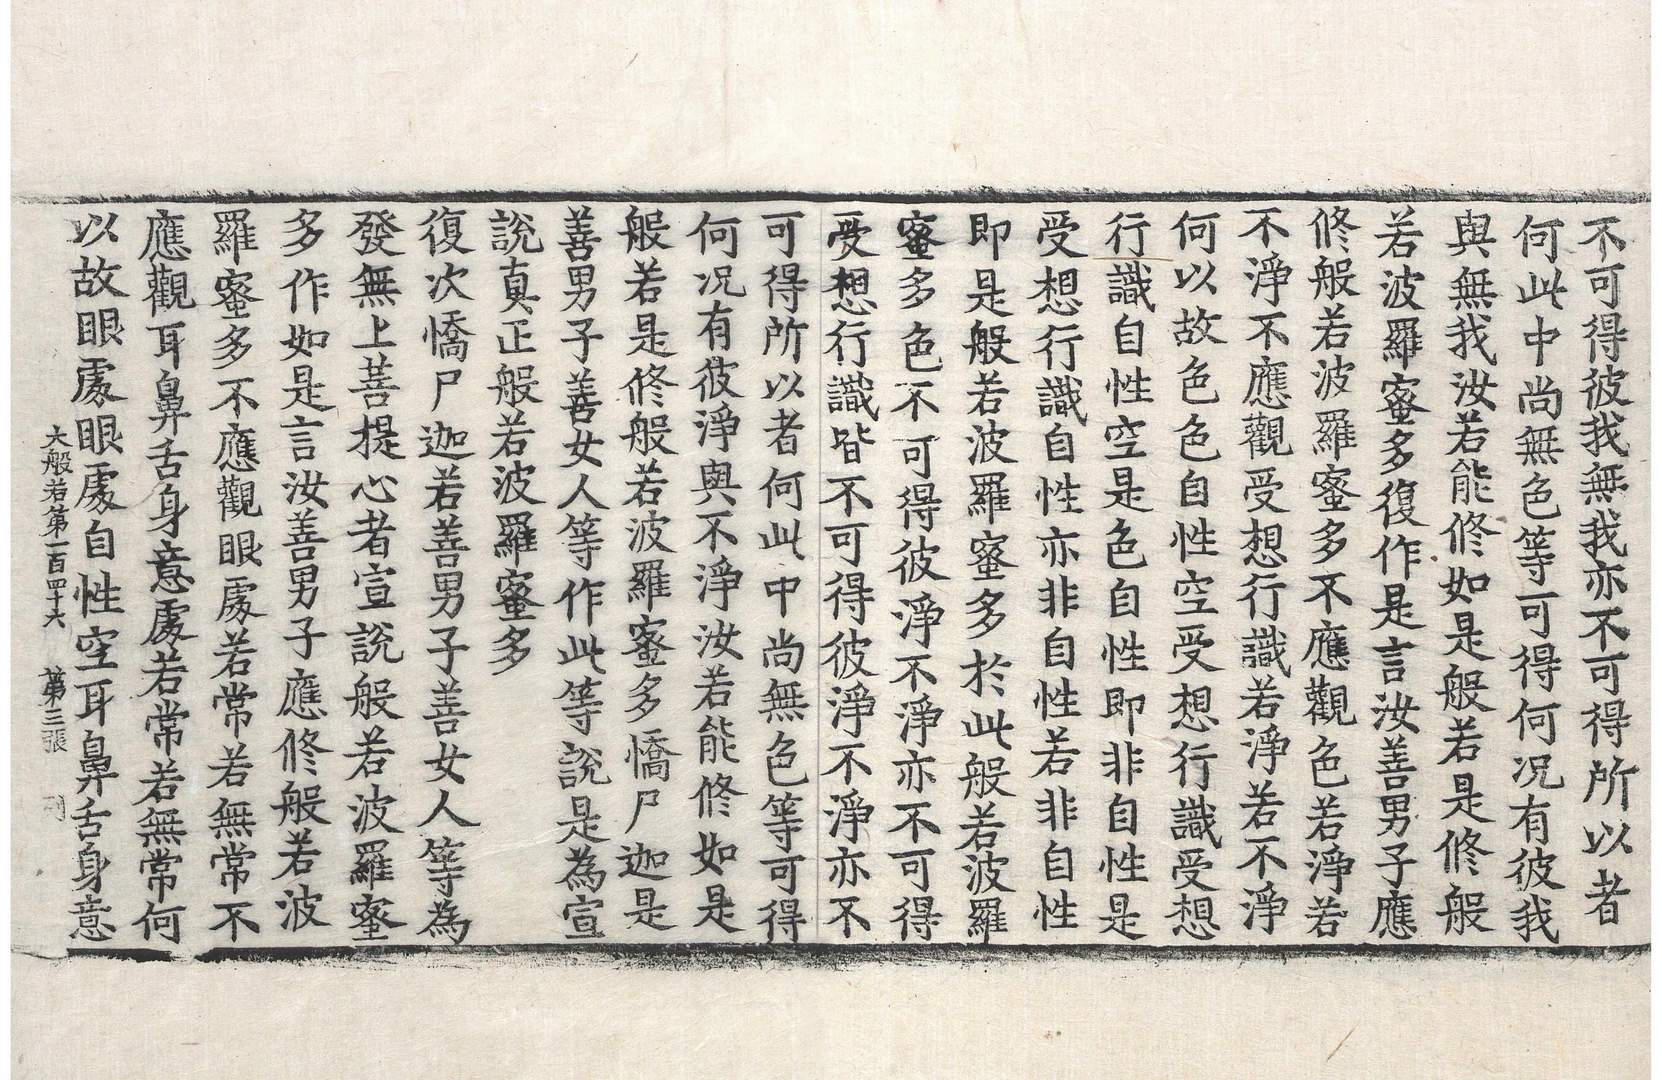 不可得彼我無我亦不可得所以者
何此中尚無色等可得何況有彼我
與無我汝若能修如是般若是修般
若波羅蜜多復作是言汝善男子應
修般若波羅蜜多不應觀色若淨若
不淨不應觀受想行識若淨若不淨
何以故色色自性空受想行識受想
行識自性空是色自性即非自性是
受想行識自性亦非自性若非自性
即是般若波羅蜜多於此般若波羅
蜜多色不可得彼淨不淨亦不可得
受想行識皆不可得彼淨不淨亦不
可得所以者何此中尚無色等可得
何況有彼淨與不淨汝若能修如是
般若是修般若波羅蜜多憍尸迦是
善男子善女人等作此等說是為宣
說真正般若波羅蜜多
復次憍尸迦若善男子善女人等為
發無上菩提心者宣說般若波羅蜜
多作如是言汝善男子應修般若波
羅蜜多不應觀眼處若常若無常不
應觀耳鼻舌身意處若常若無常何
以故眼處眼處自性空耳鼻舌身意
大般若第一百四十六 第三張